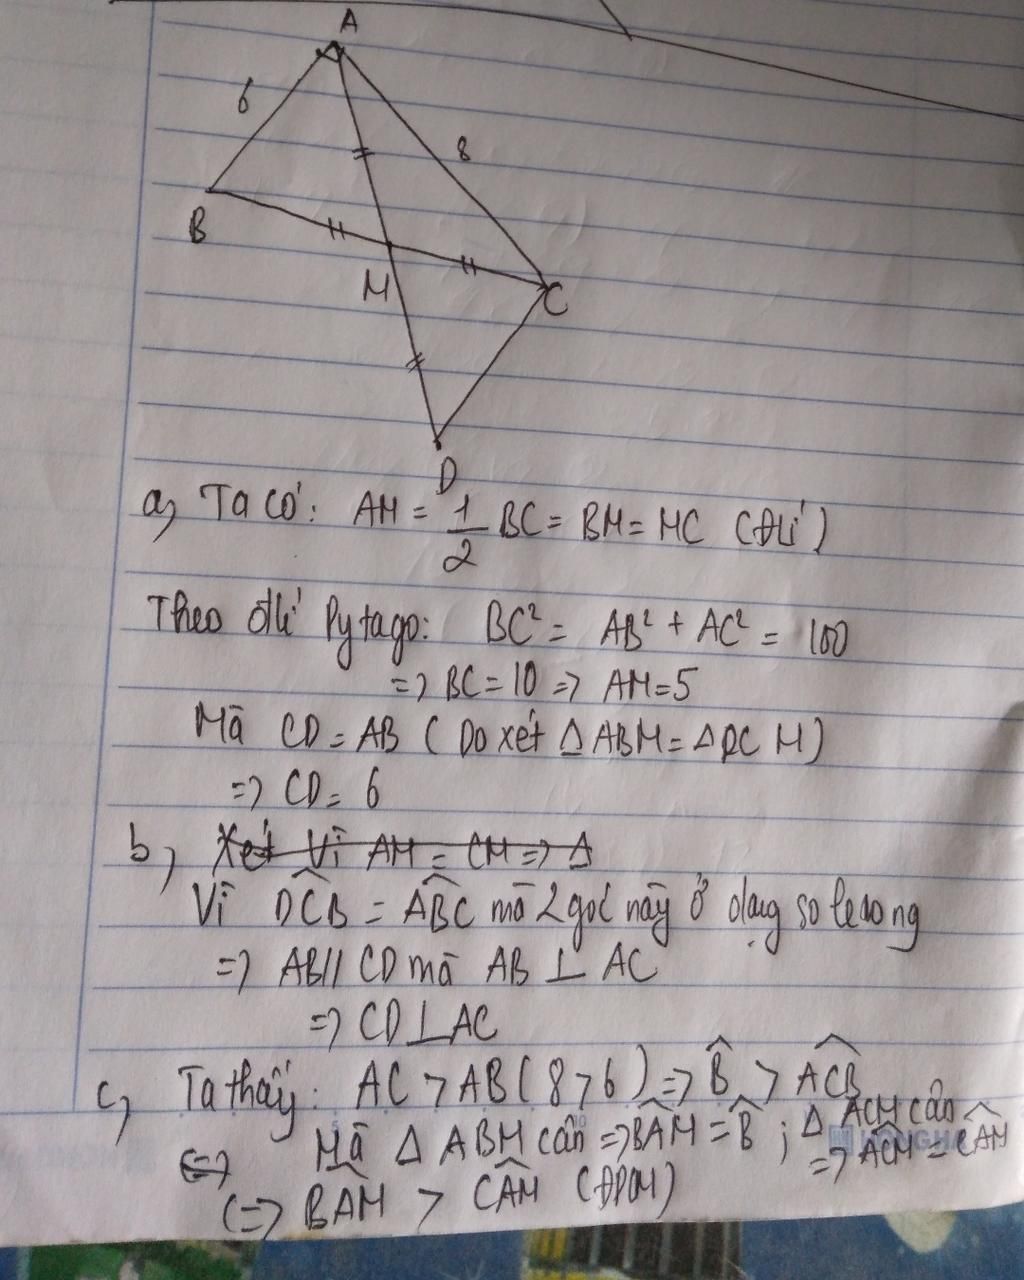 A
6
8
B
M
C
D
a, Ta có: AM = 1/2 BC = BM = MC (Đlí)
Theo đlí Pytago: BC² = AB² + AC² = 100
=> BC = 10 => AM = 5
Mà CD = AB (Do xét Δ ABM = Δ DCM)
=> CD = 6
b, Xét Vì AM = CM => Δ
Vì DCB = ABC mà 2 góc này ở dạng so le trong
=> AB // CD mà AB ⊥ AC
=> CD ⊥ AC
c, Ta thấy: AC > AB (8 > 6) => B > ACB
<=> Mà Δ ABM cân => BAM = B ; Δ ACM cân
=> ACM = CAM
(=> BAM > CAM (ĐPCM)